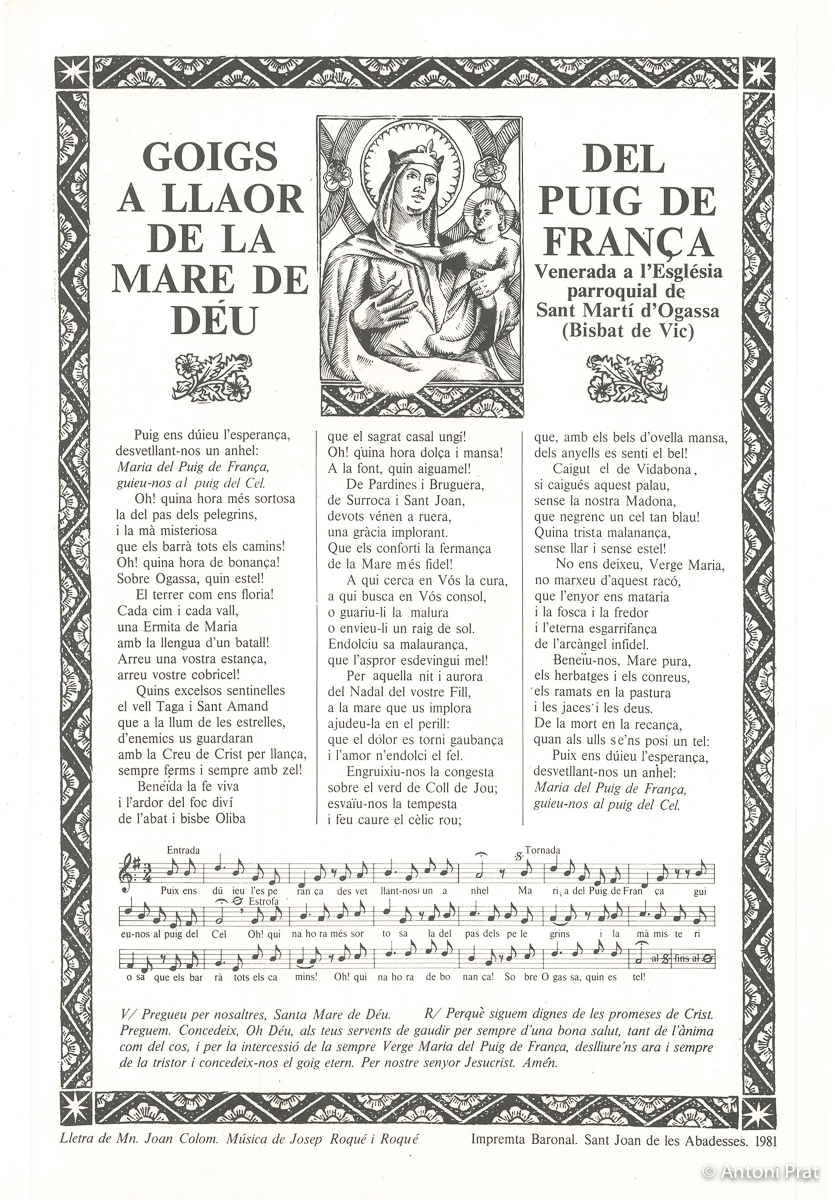 GOIGS
A LLAOR
DE LA
MARE DE
DÉU
DEL
PUIG DE
FRANÇA
Venerada a l'Església
parroquial de
Sant Martí d'Ogassa
(Bisbat de Vic)
Puig ens dúieu l'esperança,
desvetllant-nos un anhel:
Maria del Puig de França,
guieu-nos al puig del Cel.
Oh! quina hora més sortosa
la del pas dels pelegrins,
i la mà misteriosa
que els barrà tots els camins!
Oh! quina hora de bonança!
Sobre Ogassa, quin estel!
El terrer com ens floria!
Cada cim i cada vall,
una Ermita de Maria
amb la llengua d'un batall!
Arreu una vostra estança,
arreu vostre cobricel!
Quins excelsos sentinelles
el vell Taga i Sant Amand
que a la llum de les estrelles,
d'enemics us guardaran
amb la Creu de Crist per llança,
sempre ferms i sempre amb zel!
Beneïda la fe viva
i l'ardor del foc diví
de l'abat i bisbe Oliba
que el sagrat casal ungí!
Oh! quina hora dolça i mansa!
A la font, quin aiguamel!
De Pardines i Bruguera,
de Surroca i Sant Joan,
devots vénen a ruera,
una gràcia implorant.
Que els conforti la fermança
de la Mare més fidel!
A qui cerca en Vós la cura,
a qui busca en Vós consol,
o guariu-li la malura
o envieu-li un raig de sol.
Endolciu sa malaurança,
que l'aspror esdevingui mel!
Per aquella nit i aurora
del Nadal del vostre Fill,
a la mare que us implora
ajudeu-la en el perill:
que el dólor es torni gaubança
i l'amor n'endolci el fel.
Engruixiu-nos la congesta
sobre el verd de Coll de Jou;
esvaïu-nos la tempesta
i feu caure el cèlic rou;
que, amb els bels d'ovella mansa,
dels anyells es senti el bel!
Caigut el de Vidabona,
si caigués aquest palau,
sense la nostra Madona,
que negrenc un cel tan blau!
Quina trista malanança,
sense llar i sense estel!
No ens deixeu, Verge Maria,
no marxeu d'aquest racó,
que l'enyor ens mataria
i la fosca i la fredor
i l'eterna esgarrifança
de l'arcàngel infidel.
Beneïu-nos, Mare pura,
els herbatges i els conreus,
els ramats en la pastura
i les jaces i les deus.
De la mort en la recança,
quan als ulls se'ns posi un tel:
Puix ens dúieu l'esperança,
desvetllant-nos un anhel:
Maria del Puig de França,
guieu-nos al puig del Cel.
Entrada
Tornada
Puix ens dú ieu l'es pe ran ça des vet llant-nosi un a nhel Ma ri, a del Puig de Fran ça gui
Estrofa
eu-nos al puig del Cel Oh! qui na ho ra més sor to sa la del pas dels pe le grins i la mà mis te ri
al fins al
o sa que els bar rà tots els ca mins! Oh! qui na ho ra de bo nan ça! So bre O gas sa, quin es tel!
V/ Pregueu per nosaltres, Santa Mare de Déu. R/ Perquè siguem dignes de les promeses de Crist.
Preguem. Concedeix, Oh Déu, als teus servents de gaudir per sempre d'una bona salut, tant de l'ànima
com del cos, i per la intercessió de la sempre Verge Maria del Puig de França, deslliure'ns ara i sempre
de la tristor i concedeix-nos el goig etern. Per nostre senyor Jesucrist. Amén.
Lletra de Mn. Joan Colom. Música de Josep Roqué i Roqué
Impremta Baronal. Sant Joan de les Abadesses. 1981
© Antoni Prat